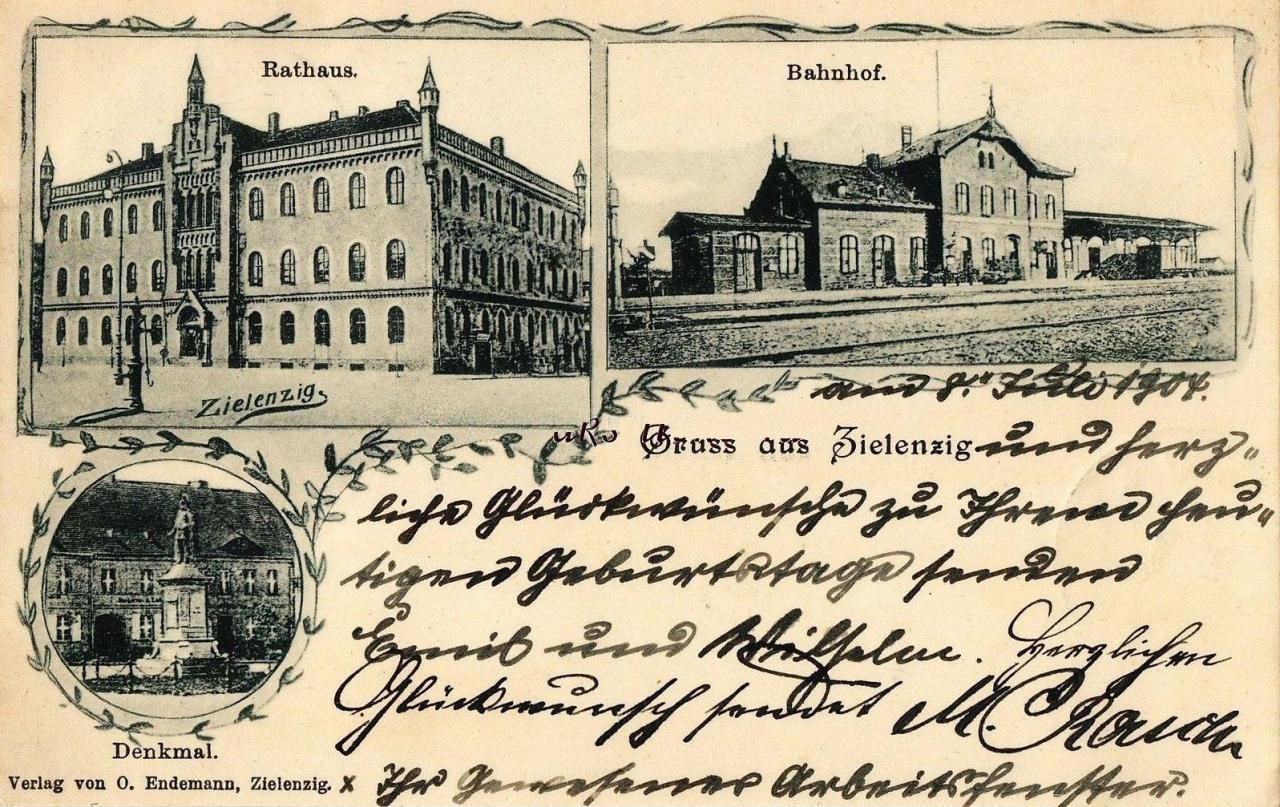 Rathaus.
Bahnhof.
Zielenzig.
am 8. Juli 1904.
Gruss aus Zielenzig und herz-
liche Glückwünsche zu Ihrem heu-
tigen Geburtstage senden
Emil und Wilhelm. Herzlichen
Glückwunsch sendet M. Rasch
Denkmal.
Verlag von O. Endemann, Zielenzig. x Ihr Gewesener Arbeitsfenster.